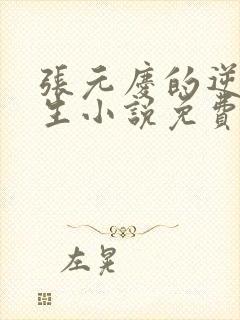 張元慶的逆
生小說免費
左晃